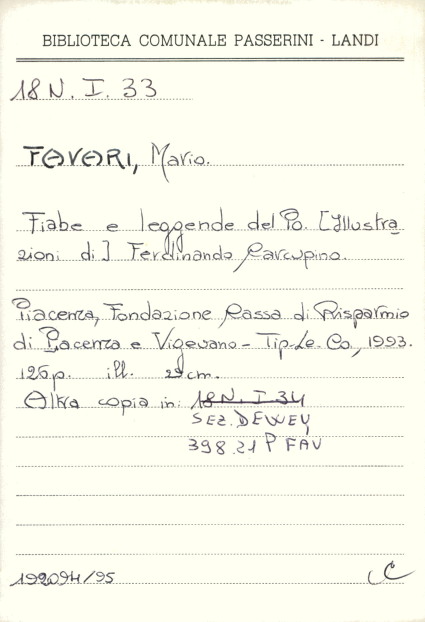 BIBLIOTECA COMUNALE PASSERINI - LANDI
18 N. I. 33
FAVARI, Mario.
Fiabe e leggende del Po. [Illustra
zioni di] Ferdinando Carcupino.
Piacenza, Fondazione Cassa di Risparmio
di Piacenza e Vigevano - Tip.Le.Co., 1993.
126 p. ill. 29 cm.
Altra copia in: 18 N. I 34
SEZ. DEWEY
398.21 P FAV
192094/95 C